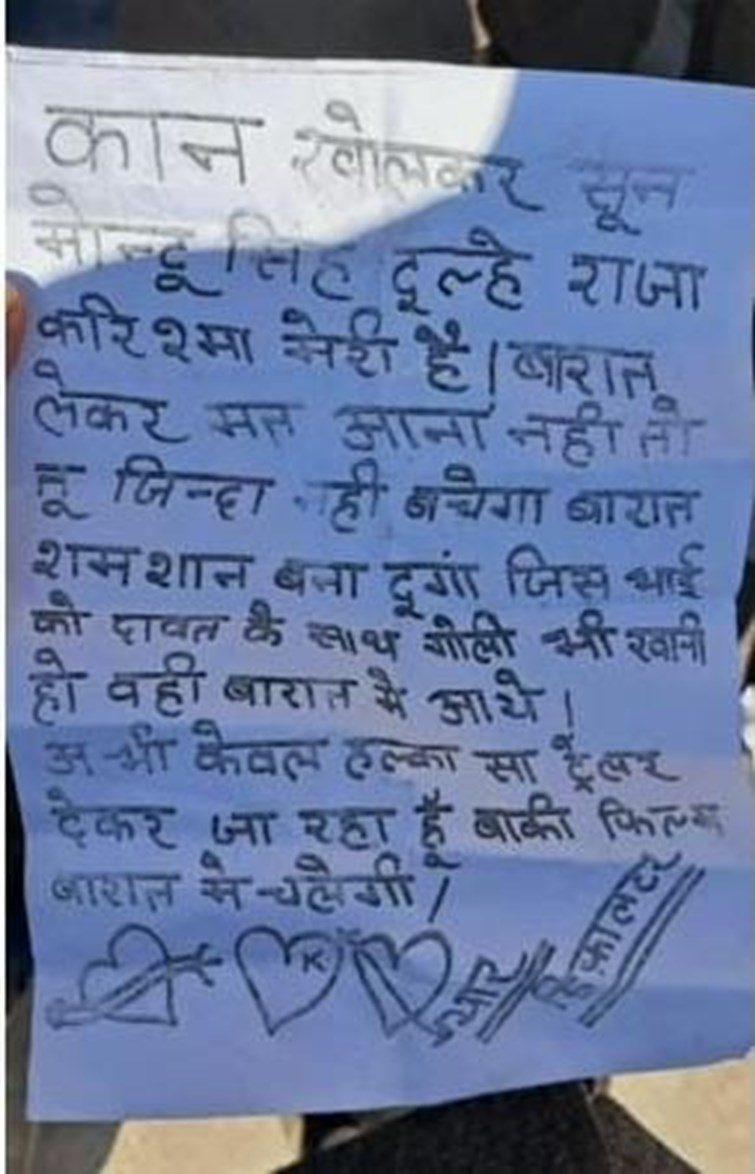 कान खोलकर सून
मोन्टू सिंह दूल्हे राजा
करिश्मा मेरी है। बारात
लेकर मत आना नही तो
तू जिन्दा नही बचेगा बारात
शमशान बना दूगां जिस भाई
को दावत के साथ गोली भी खानी
हो वही बारात मे आये।
अभी केवल हल्का सा ट्रेलर
देकर जा रहा हूँ बाकी फिल्म
बारात मे चलेगी।
K
यार
डिफ़ालटर